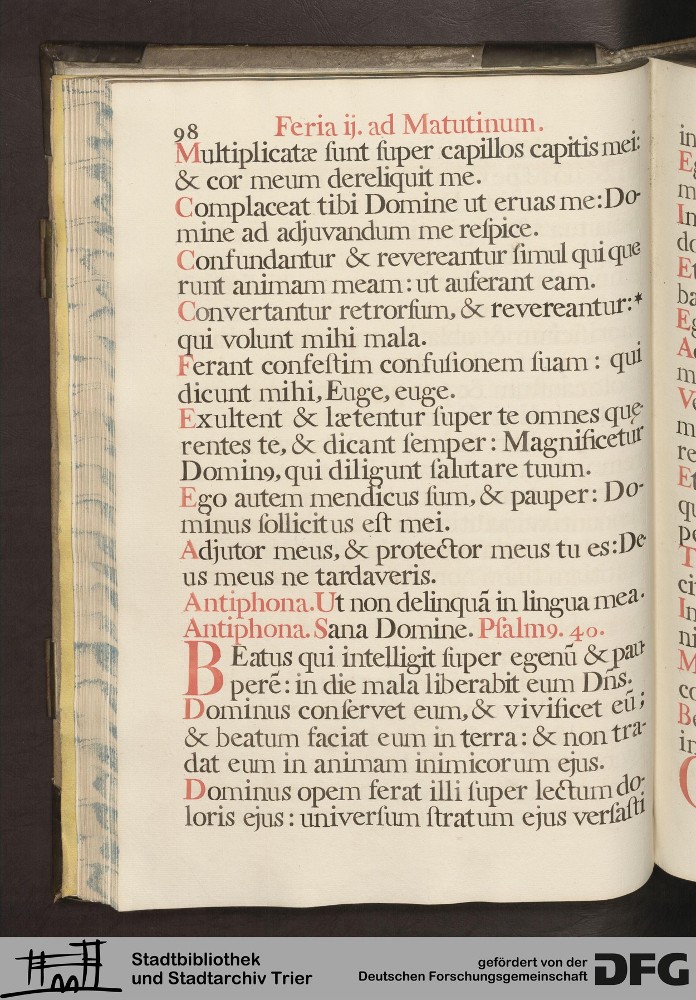 98 Feria ij. ad Matutinum.
Multiplicatæ ſunt ſuper capillos capitis mei:
& cor meum dereliquit me.
Complaceat tibi Domine ut eruas me: Do-
mine ad adjuvandum me reſpice.
Confundantur & revereantur ſimul qui que
runt animam meam: ut auferant eam.
Convertantur retrorſum, & revereantur:*
qui volunt mihi mala.
Ferant confeſtim confuſionem ſuam: qui
dicunt mihi, Euge, euge.
Exultent & lætentur ſuper te omnes quę-
rentes te, & dicant ſemper: Magnificetur
Dominꝰ, qui diligunt ſalutare tuum.
Ego autem mendicus ſum, & pauper: Do-
minus ſollicitus eſt mei.
Adjutor meus, & protector meus tu es: De-
us meus ne tardaveris.
Antiphona. Ut non delinquã in lingua mea.
Antiphona. Sana Domine. Pſalmꝰ. 40.
BEatus qui intelligit ſuper egenũ & pau-
perẽ: in die mala liberabit eum Dñs.
Dominus conſervet eum, & vivificet eũ;
& beatum faciat eum in terra: & non tra-
dat eum in animam inimicorum ejus.
Dominus opem ferat illi ſuper lectum do-
loris ejus: univerſum ſtratum ejus verſaſti
in
m
In
do
Et
ba
m
m
re
Et
qu
pe
T
ci
In
ni
M
co
Be
in
Stadtbibliothek
und Stadtarchiv Trier
gefördert von der
Deutschen Forschungsgemeinschaft
DFG